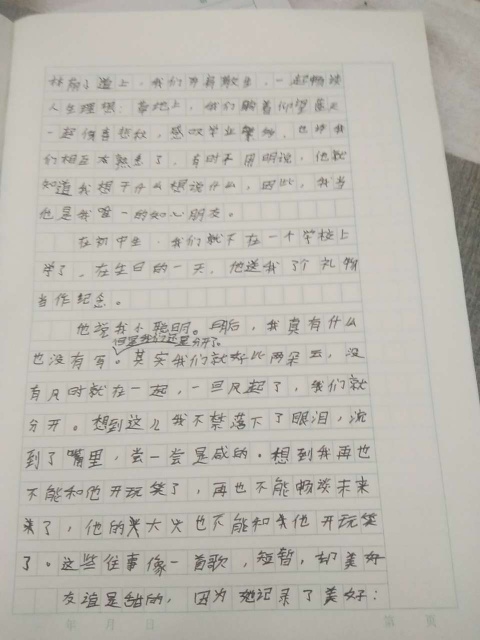 林荫小道上，我们并肩散步，一起畅谈
人生理想；草地上，我们躺着仰望蓝天
一起伤春悲秋，感叹学业繁多。也许我
们相在太熟悉了，有时不用明说，他就
知道我想干什么想说什么，因此，我当
他是我唯一的知心朋友。
在初中生，我们就不在一个学校上
学了。在生日的一天，他送我了个礼物
当作纪念。
他笑我小聪明。最后，我真有什么
但是我们还是分开了。
也没有写。其实我们就好比两朵云，没
有风时就在一起，一旦风起了，我们就
分开。想到这儿我不禁落下了眼泪，流
到了嘴里，尝一尝是咸的。想到我再也
不能和他开玩笑了，再也不能畅谈未来
来了，他的 也不能和我他开玩笑
了。这些往事像一首歌，短暂，却美好
友谊是甜的，因为她记录了美好：
年 月 日 第 页